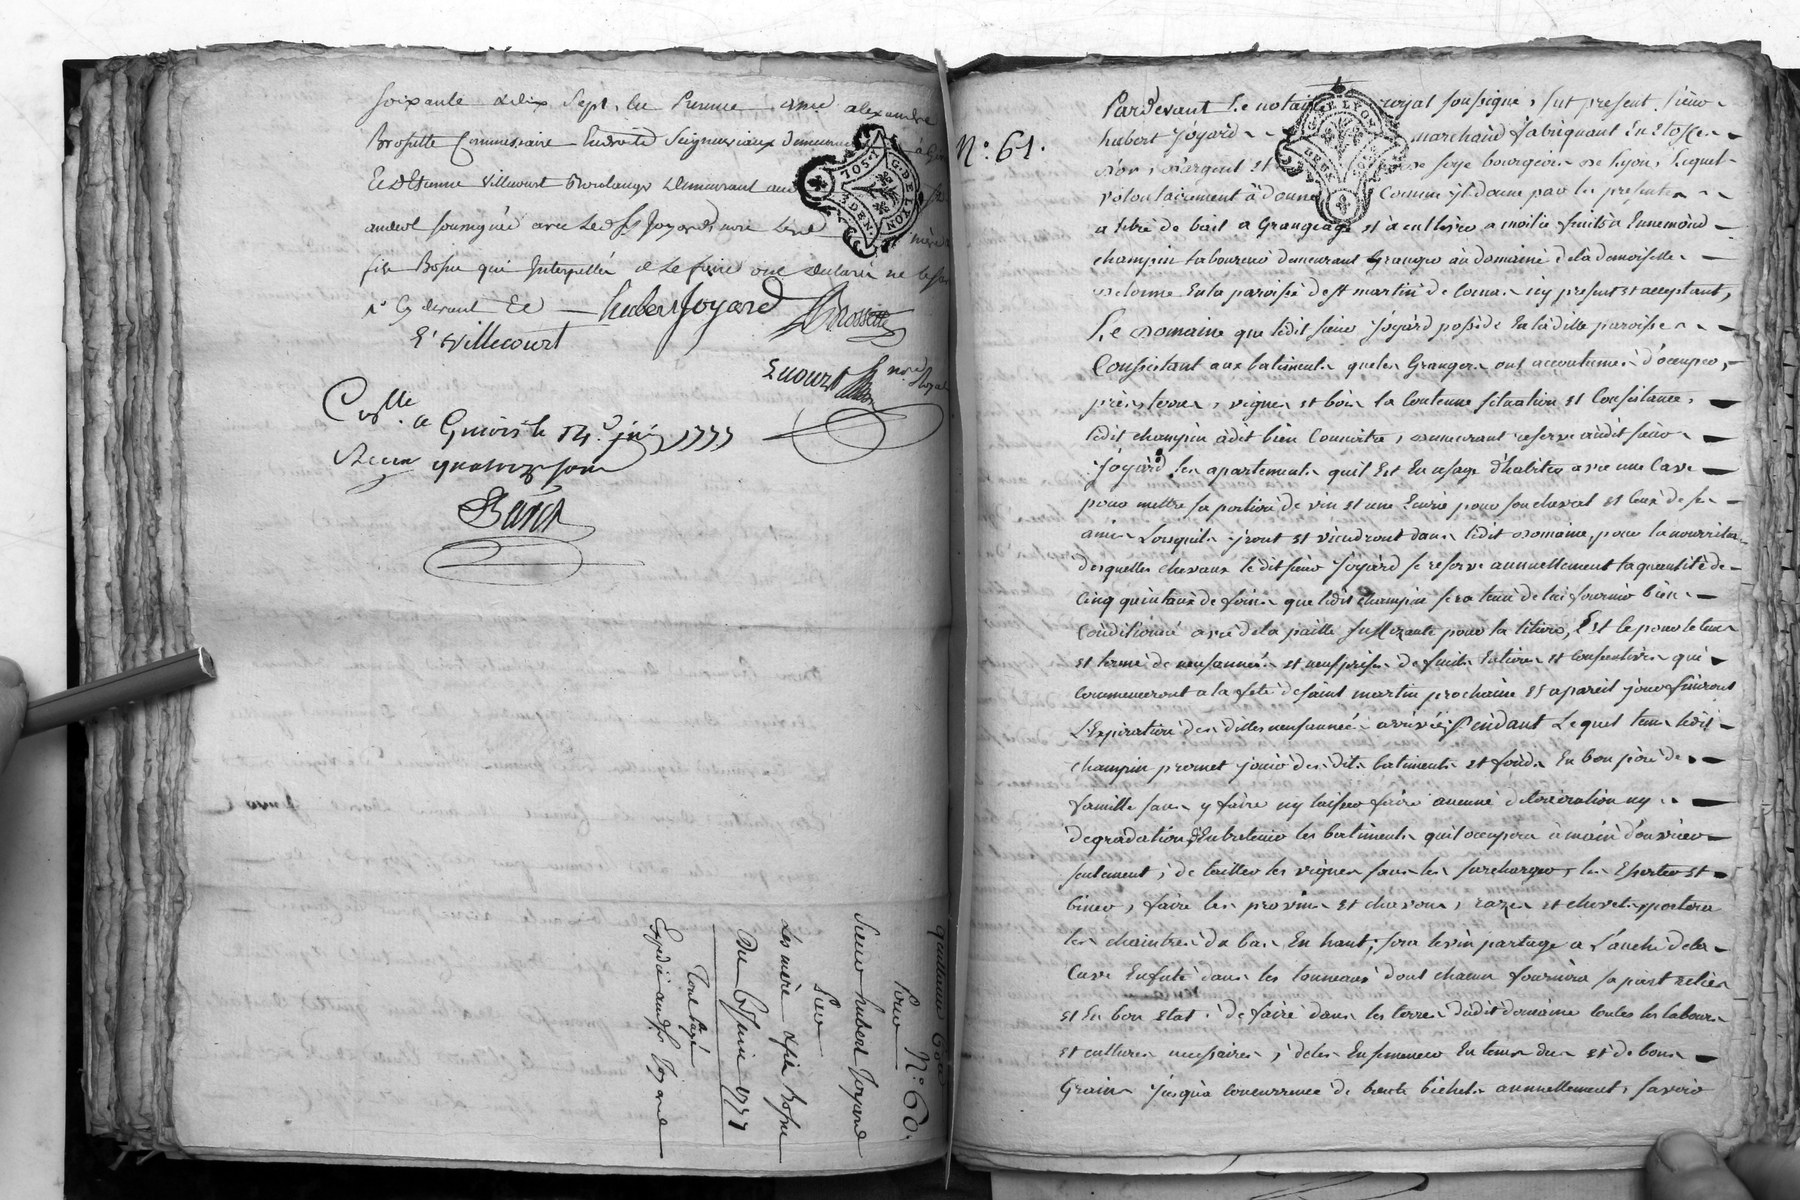 soixante & dix Sept, les Presence dme alexandre
Brossette Commissaire Endroits Seigneuriaux Demeurant à
Et Etienne Villecourt Boulanger Demeurant
andeol soussignés avec Led Sr Joyard non Lesd mère
fils Bosse qui Interpellés de Le faire ont declaré ne le
cy devant Et hubert Joyard Brossette
E. Villecourt
nore Royal
Collé a Givors le 14 juin 1777
Receu quatorze sous
Guillaume
Pour N° 60.
Sieur hubert Joyard
Les mère & fils Bosse
Du Juin 1777
Expédié audsr Joyard
N° 61.
Pardevant Le notaire royal soussigné, fut present sieur
hubert Joyard marchand fabriquant En Etoffes
d'or, d'argent et de soye bourgeois de Lyon, Lequel
volontairement à donné Comme jl donne par les presentes
a titre de bail a Grangeage et à cultiver a moitié fruits a Ennemond
champin laboureur demeurant Granger au domaine dela demoiselle
delorme En la paroisse de st martin de Cornas icy present et acceptant,
Le Domaine que ledit sieur Joyard possede En la ditte paroisse
Consistant aux batiments que les Grangers ont accoutumés d'occuper,
prés, terres, vignes et bois la Contenue situation et Consistance,
ledit champin à dit bien Connoitre, demeurant reservé audit sieur
Joyard les apartements qu'il Est En usage d'habiter avec une Cave
pour mettre sa portion de vin et une Ecurie pour son cheval et Ceux de ses
amis Lorsqu'ils jront et viendront dans ledit domaine, pour la nourriture
desquelles chevaux ledit sieur Joyard se reserve annuellement la quantité de
Cinq quintaux de foins que ledit champin sera tenu de lui fournir bien
Conditionné avec de la paille suffizante pour la litiere, Et ce pour le tems
et terme de neuf années et neuf prises de fruits Entieres et Consecutives qui
Commenceront a la fete de saint martin prochaine et a pareil jour finiront
L'Expiration des dittes neuf années arrivée; Pendant Lequel tems ledit
champin promet jouir des dits batiments et fonds En bon pere de
famille sans y faire ny laisser faire aucune deterioration ny
degradation, d'Entretenir les batiments qu'il occupera à main d'ouvrier
seulement; de tailler les vignes sans les surcharger, les Essarter et
biner, faire les provins et chavons, razes et chevets, portera
les chaintres du bas En haut; sera le vin partagé a L'anche dela
Cuve Enfuté dans les tonneaux dont chacun fournira sa part reliés
et En bon Etat. de faire dans les terres dudit domaine toutes les labours
et cultures necessaires; deles Ensemencer En tems du et de bons
Grains jusqu'a concurrence de trente bichets annuellement, savoir